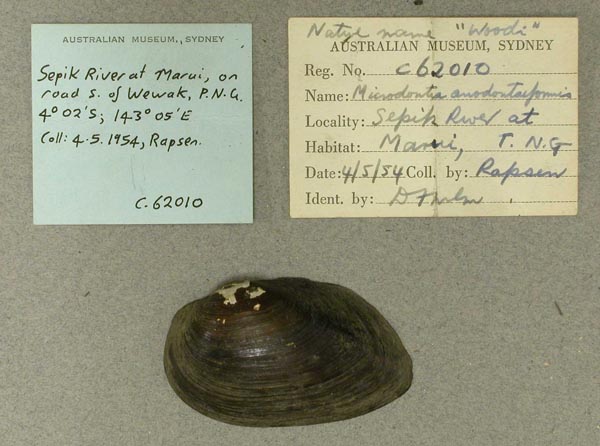 AUSTRALIAN MUSEUM, SYDNEY
Sepik River at Marui, on
road S. of Wewak, P.N.G.
4° 02'S; 143° 05'E
Coll: 4.5.1954, Rapsen.
C.62010
Native name "Woodi"
AUSTRALIAN MUSEUM, SYDNEY
Reg. No. C62010
Name: Microdontia anodontaeformis
Locality: Sepik River at
Habitat: Marui, T.N.G
Date: 4/5/54 Coll. by: Rapsen
Ident. by: